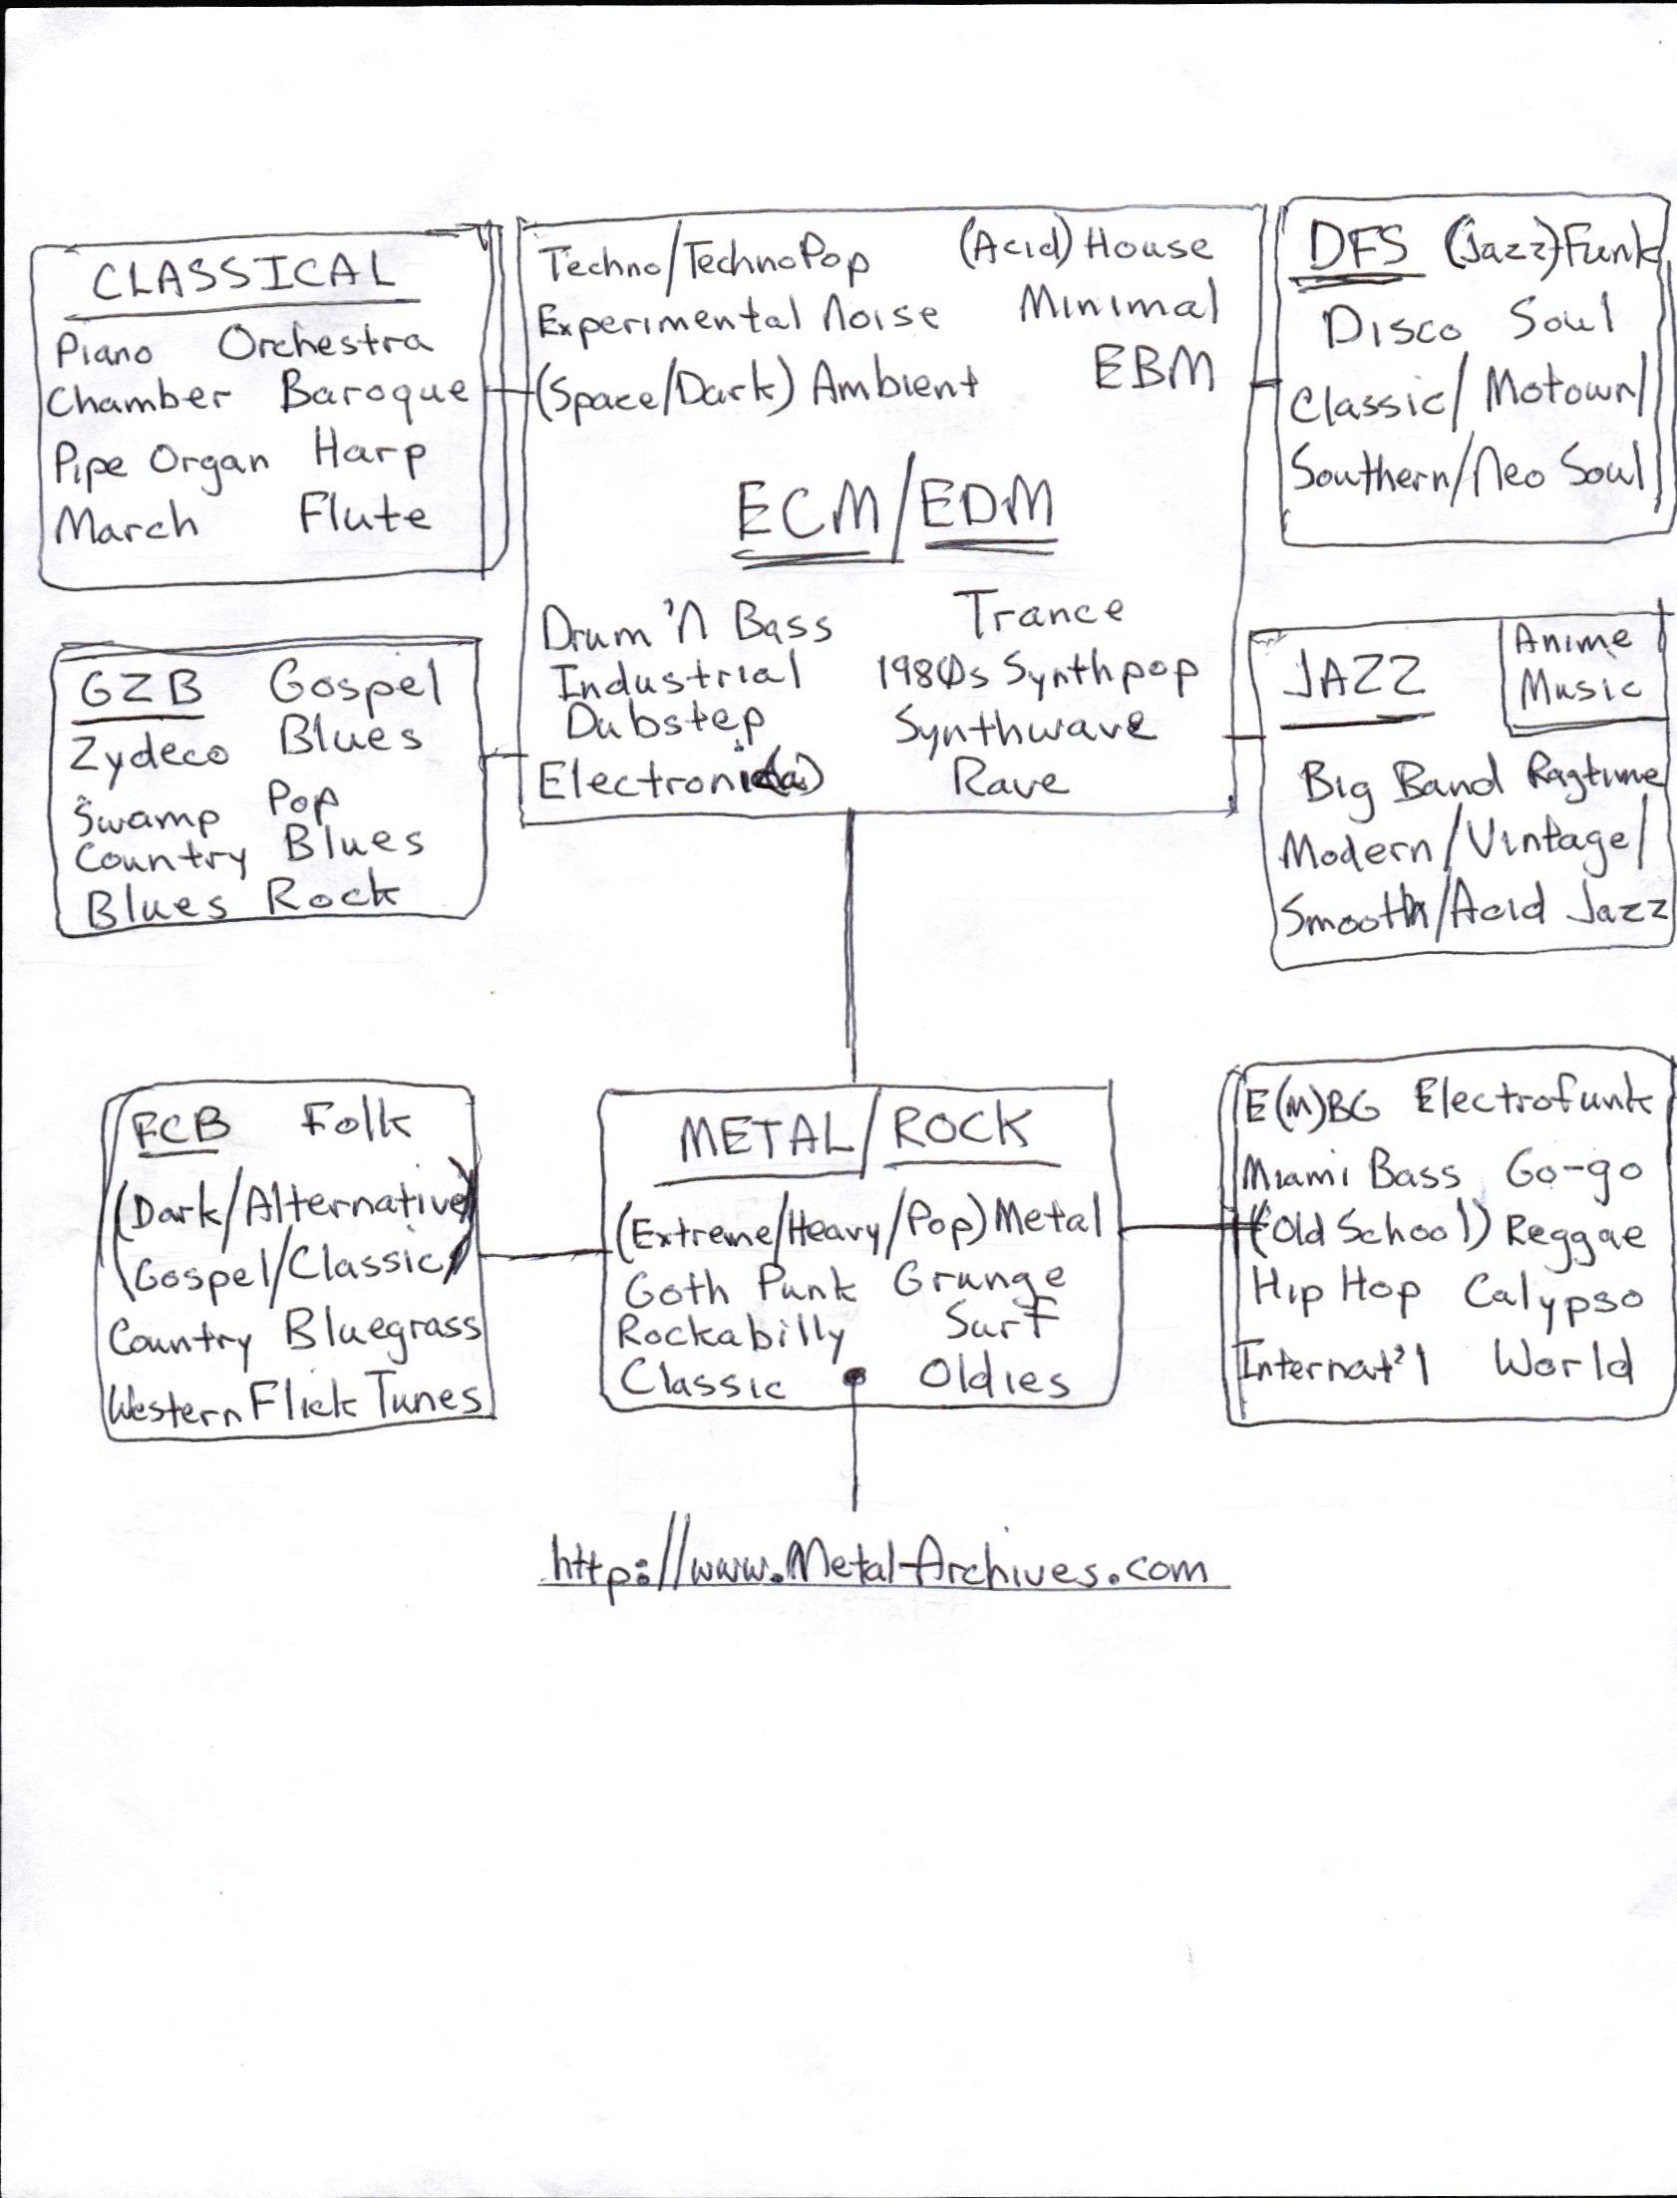 CLASSICAL
Piano Orchestra
Chamber Baroque
Pipe Organ Harp
March Flute
Techno/TechnoPop (Acid) House
Experimental Noise Minimal
(Space/Dark) Ambient EBM
ECM/EDM
Drum 'N Bass Trance
Industrial 1980s Synthpop
Dubstep Synthwave
Electroni(ca) Rave
DFS (Jazz-)Funk
Disco Soul
Classic/Motown/
Southern/Neo Soul
GZB Gospel
Zydeco Blues
Swamp Pop
Country Blues
Blues Rock
JAZZ
Anime
Music
Big Band Ragtime
Modern/Vintage/
Smooth/Acid Jazz
FCB Folk
(Dark/Alternative/
Gospel/Classic)
Country Bluegrass
Western Flick Tunes
METAL/ROCK
(Extreme/Heavy/Pop) Metal
Goth Punk Grunge
Rockabilly Surf
Classic Oldies
E(M)BG Electrofunk
Miami Bass Go-go
(Old School) Reggae
Hip Hop Calypso
Internat'l World
http://www.Metal-Archives.com